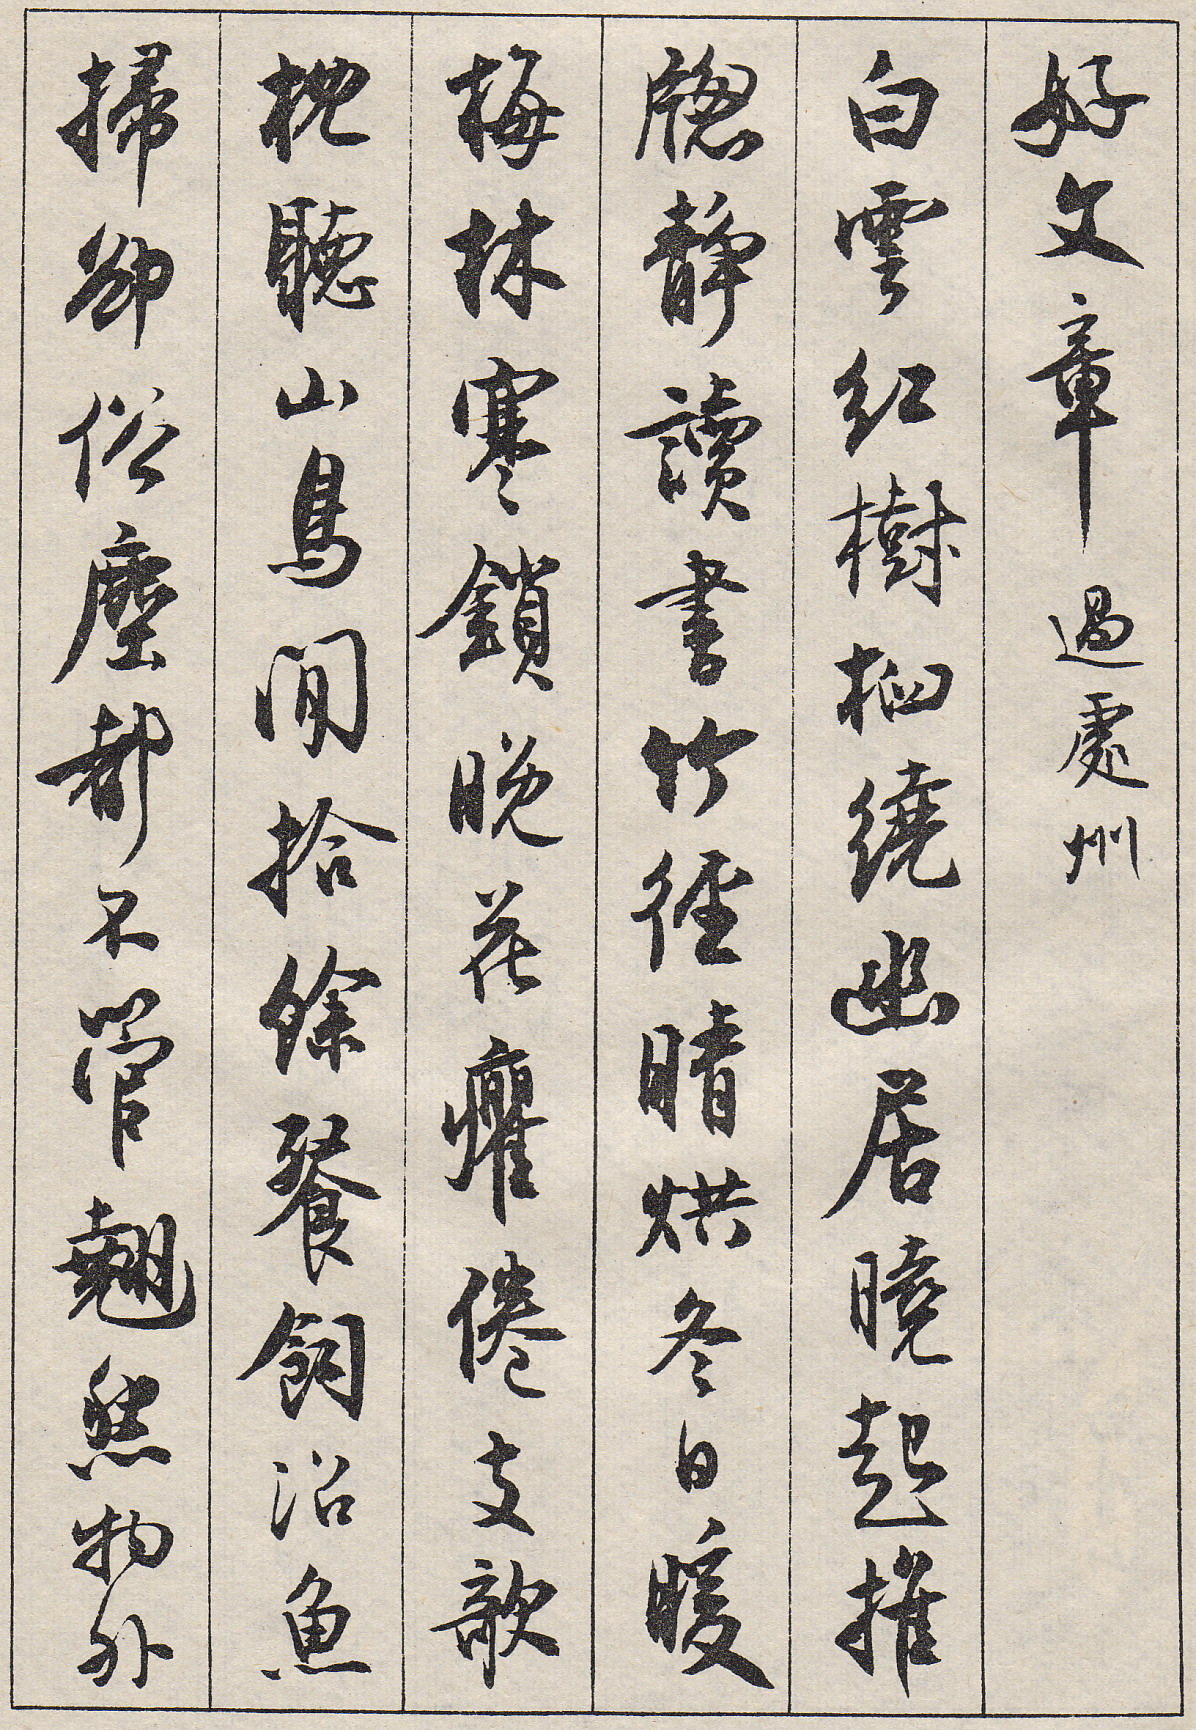 好文章 過處州
白雲紅樹相繞幽居曉起推
牕靜讀書竹徑晴烘冬日暖
梅林寒鎖晚花癯倦支欹
枕聽山鳥閒拾餘餐飼沼魚
掃卻俗塵都不管翹然物外